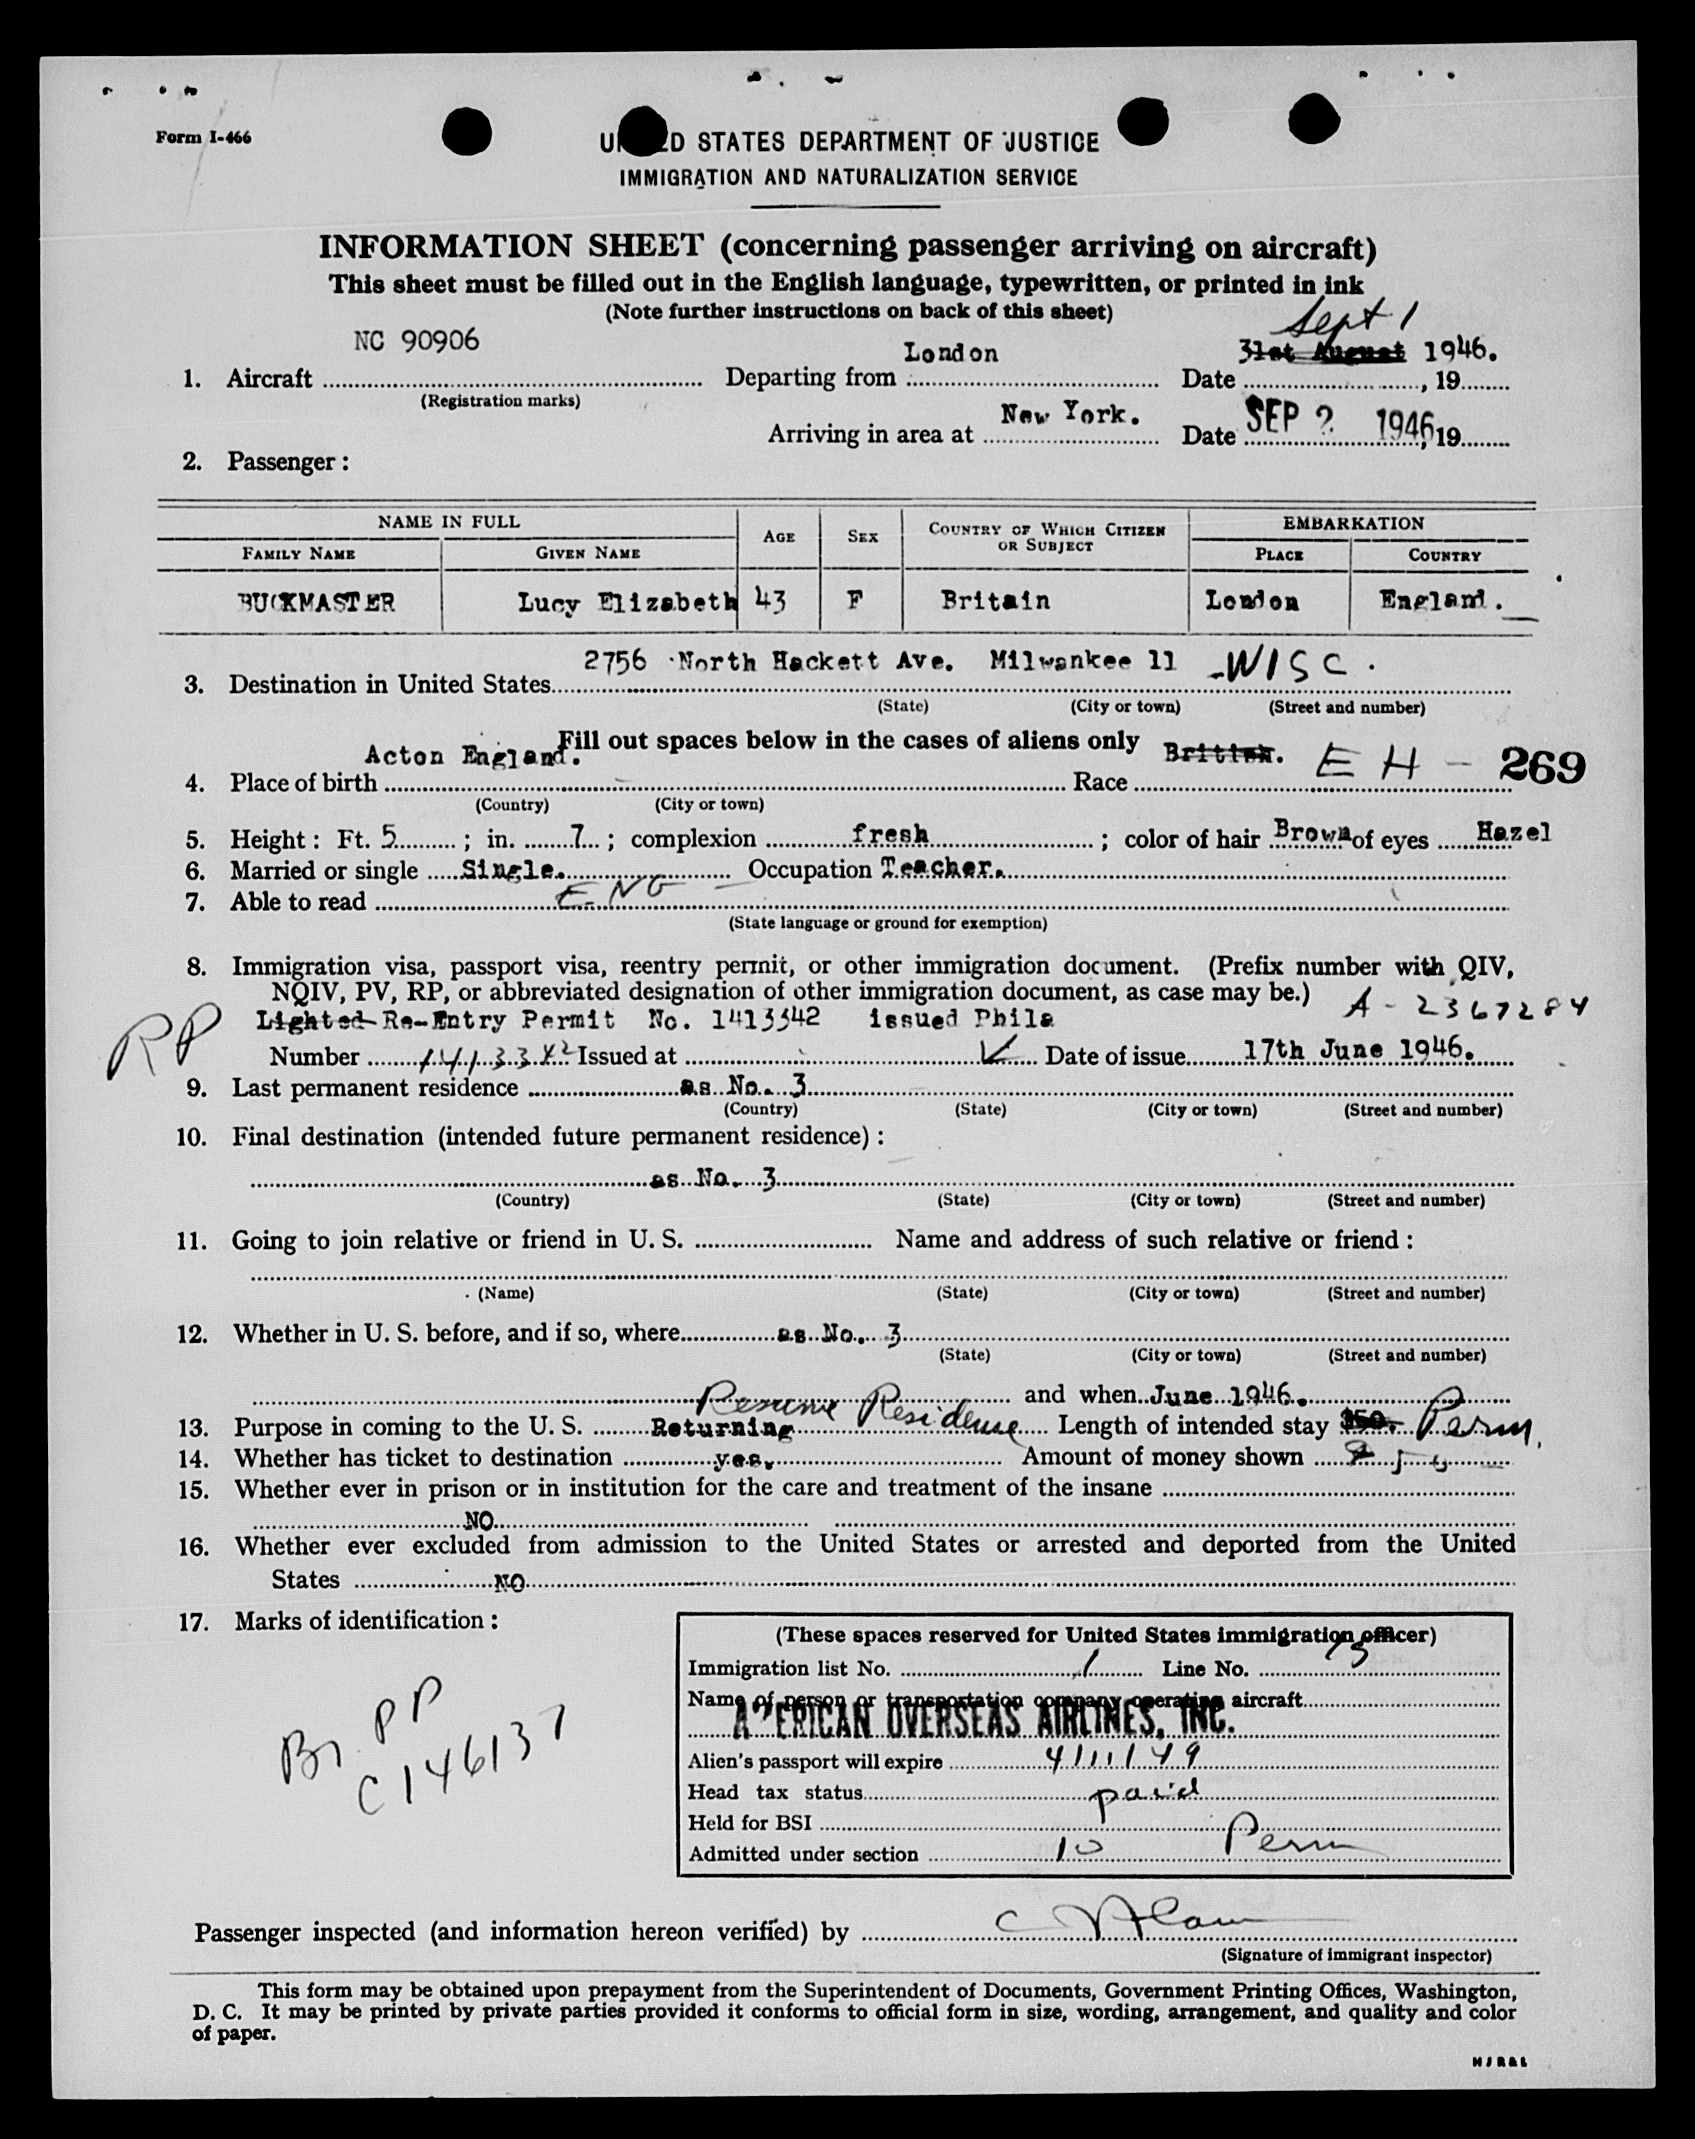 Form I-466
UNITED STATES DEPARTMENT OF JUSTICE
IMMIGRATION AND NATURALIZATION SERVICE
INFORMATION SHEET (concerning passenger arriving on aircraft)
This sheet must be filled out in the English language, typewritten, or printed in ink
(Note further instructions on back of this sheet)
Sept 1
NC 90906 London 31st August 1946.
1. Aircraft Departing from Date , 19
(Registration marks)
New York. SEP 2 1946
Arriving in area at Date , 19
2. Passenger:
NAME IN FULL AGE SEX COUNTRY OF WHICH CITIZEN OR SUBJECT EMBARKATION
FAMILY NAME GIVEN NAME PLACE COUNTRY
BUCKMASTER Lucy Elizabeth 43 F Britain London England.
2756 North Hackett Ave. Milwankee 11 -WISC.
3. Destination in United States
(State) (City or town) (Street and number)
Fill out spaces below in the cases of aliens only
Acton England. British. EH - 269
4. Place of birth Race
(Country) (City or town)
5. Height: Ft. 5 ; in. 7 ; complexion fresh ; color of hair Brown of eyes Hazel
6. Married or single Single. Occupation Teacher.
7. Able to read ENG
(State language or ground for exemption)
8. Immigration visa, passport visa, reentry permit, or other immigration document. (Prefix number with QIV,
NQIV, PV, RP, or abbreviated designation of other immigration document, as case may be.) A-2367284
Lighted Re-Entry Permit No. 1413342 issued Phila
RP
Number 1413342 Issued at Date of issue 17th June 1946.
9. Last permanent residence as No. 3
(Country) (State) (City or town) (Street and number)
10. Final destination (intended future permanent residence):
as No. 3
(Country) (State) (City or town) (Street and number)
11. Going to join relative or friend in U. S. Name and address of such relative or friend:
(Name) (State) (City or town) (Street and number)
12. Whether in U. S. before, and if so, where as No. 3
(State) (City or town) (Street and number)
and when June 1946.
Resume Residence
13. Purpose in coming to the U. S. Returning Length of intended stay Perm.
14. Whether has ticket to destination yes. Amount of money shown
15. Whether ever in prison or in institution for the care and treatment of the insane
NO
16. Whether ever excluded from admission to the United States or arrested and deported from the United
States NO
17. Marks of identification:
Br. PP
C146137
(These spaces reserved for United States immigration officer)
Immigration list No. 1 Line No.
Name of person or transportation company operating aircraft
AMERICAN OVERSEAS AIRLINES, INC.
Alien's passport will expire 4/11/49
Head tax status paid
Held for BSI
Admitted under section 10 Perm
Passenger inspected (and information hereon verified) by
(Signature of immigrant inspector)
This form may be obtained upon prepayment from the Superintendent of Documents, Government Printing Offices, Washington,
D. C. It may be printed by private parties provided it conforms to official form in size, wording, arrangement, and quality and color
of paper.